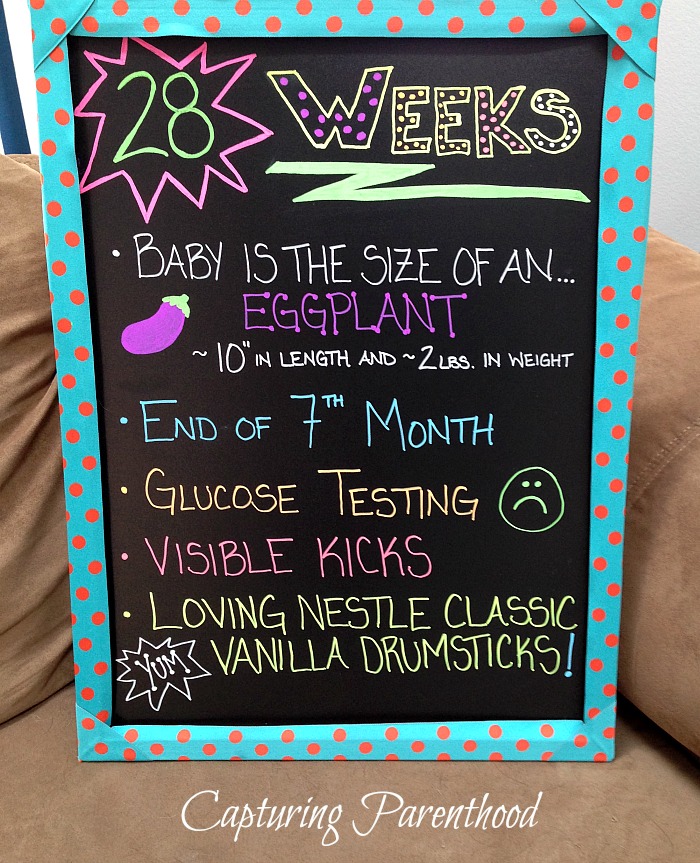 28 WEEKS
• BABY IS THE SIZE OF AN...
EGGPLANT
~ 10" IN LENGTH AND ~2 LBS. IN WEIGHT
• END OF 7TH MONTH
• GLUCOSE TESTING
• VISIBLE KICKS
• LOVING NESTLE CLASSIC
YUM VANILLA DRUMSTICKS!
Capturing Parenthood